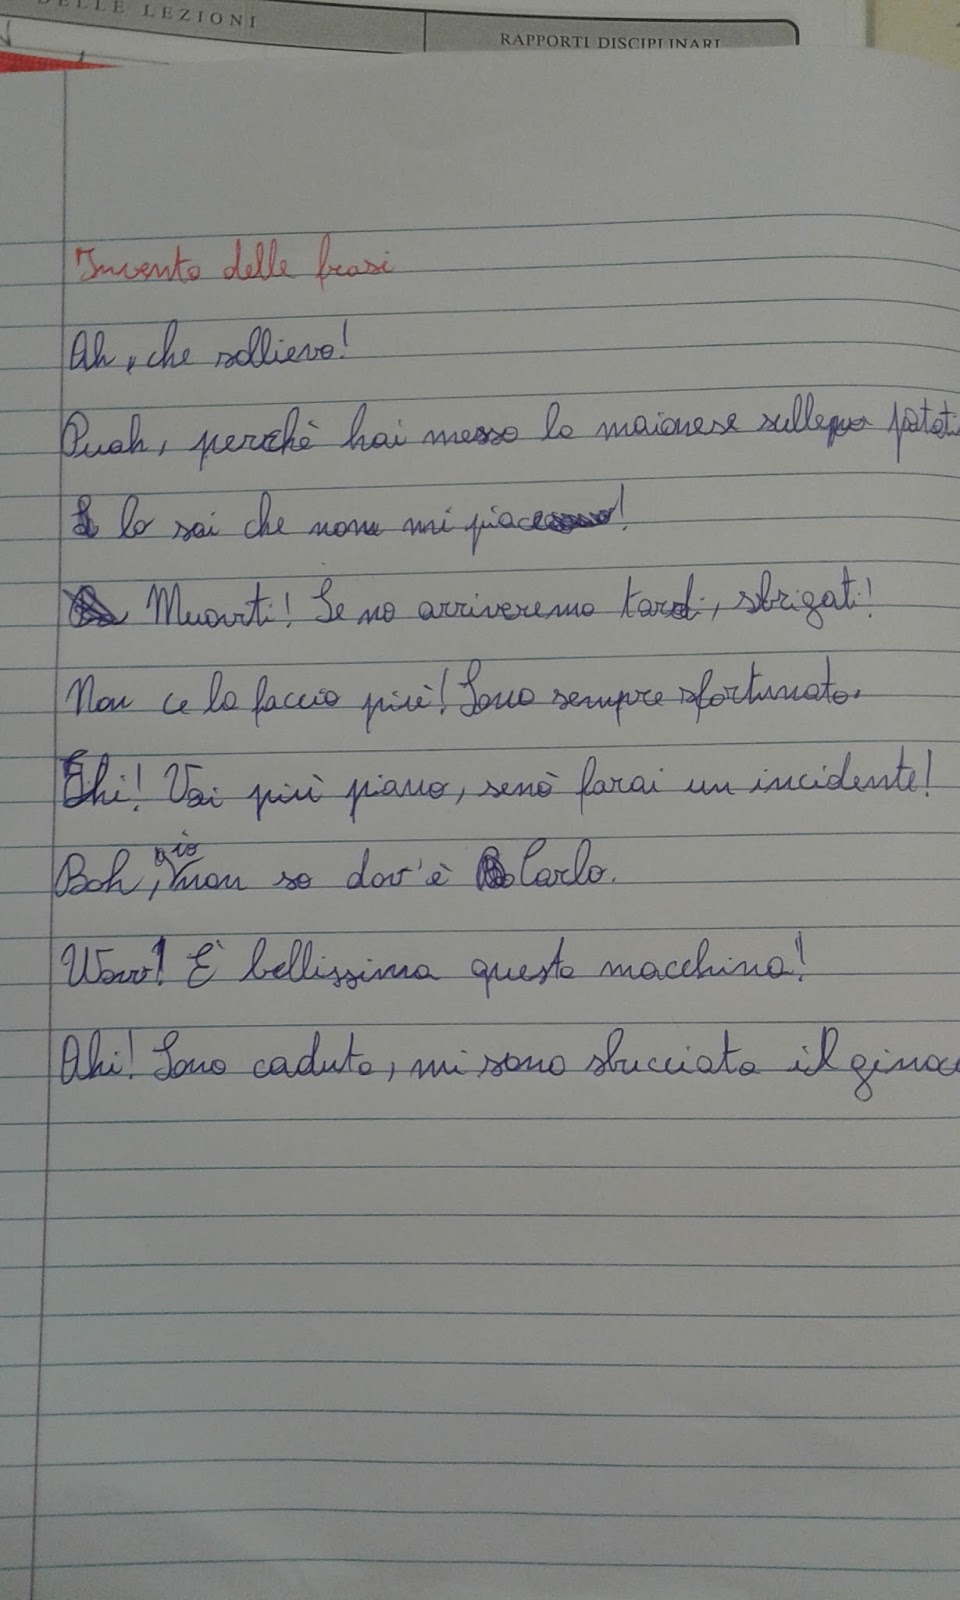 DELLE LEZIONI
RAPPORTI DISCIPLINARI
Invento delle frasi
Ah, che sollievo!
Puah, perchè hai messo la maionese sulle
lo sai che non mi piace!
Muoviti! Se no arriveremo tardi, sbrigati!
Non ce la faccio più! Sono sempre sfortunato.
Ehi! Vai più piano, senò farai un incidente!
Boh, gio non so dov'è Carlo.
Wow! È bellissima questa macchina!
Ahi! Sono caduto, mi sono sbucciato il